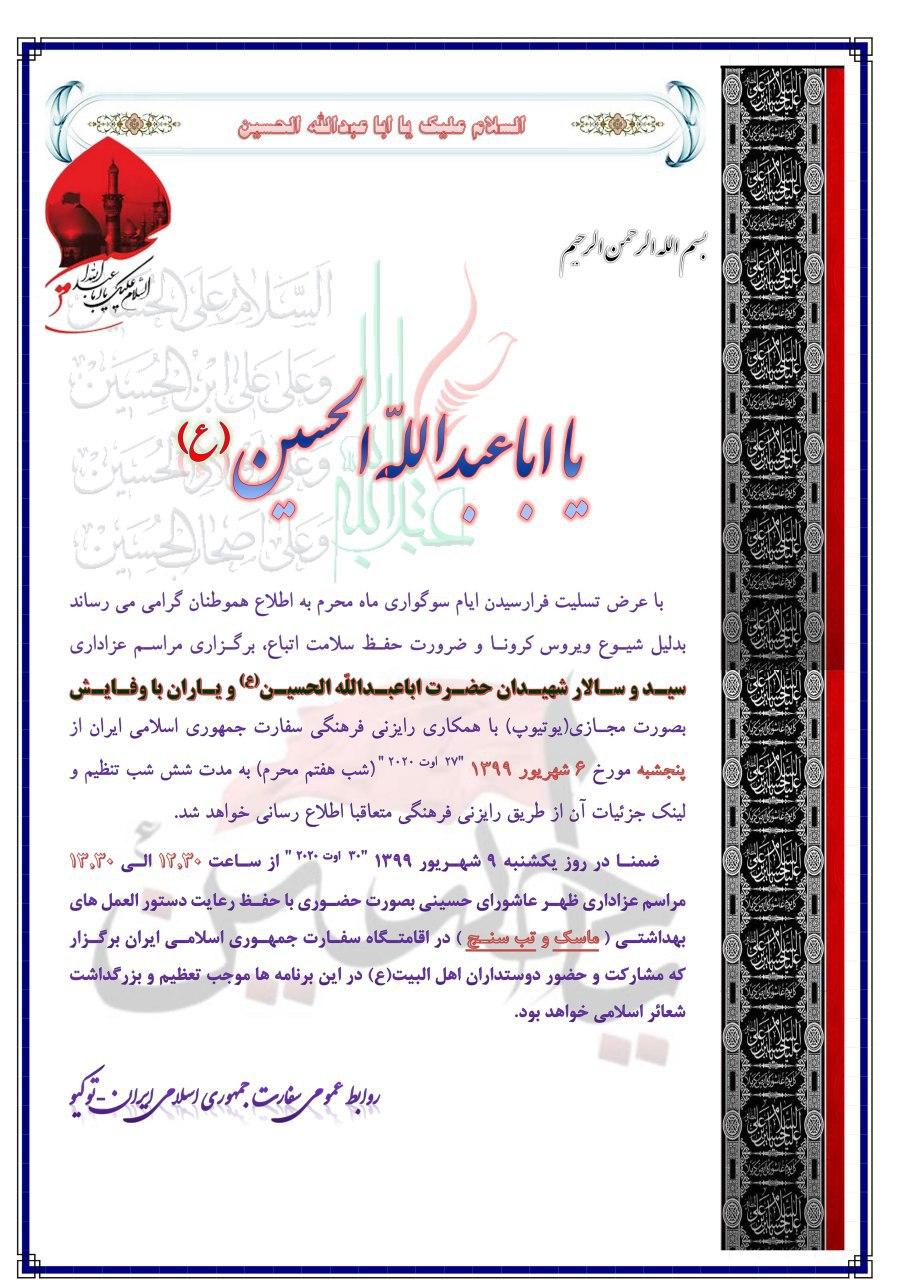 السلام علیک یا ابا عبدالله الحسین
بسم الله الرحمن الرحیم
السلام علیک یا ابا عبدالله
السلام علی الحسین
وعلی علی ابن الحسین
وعلی اولاد الحسین
وعلی اصحاب الحسین
یا اباعبدالله الحسین (ع)
با عرض تسلیت فرارسیدن ایام سوگواری ماه محرم به اطلاع هموطنان گرامی می رساند
بدلیل شیوع ویروس کرونا و ضرورت حفظ سلامت اتباع، برگزاری مراسم عزاداری
سید و سالار شهیدان حضرت اباعبدالله الحسین(ع) و یاران با وفایش
بصورت مجازی(یوتیوپ) با همکاری رایزنی فرهنگی سفارت جمهوری اسلامی ایران از
پنجشبه مورخ ۶ شهریور ۱۳۹۹ "۲۷ اوت ۲۰۲۰" (شب هفتم محرم) به مدت شش شب تنظیم و
لینک جزئیات آن از طریق رایزنی فرهنگی متعاقبا اطلاع رسانی خواهد شد.
ضمنا در روز یکشنبه ۹ شهریور ۱۳۹۹ "۳۰ اوت ۲۰۲۰" از ساعت ۱۲،۳۰ الی ۱۳،۳۰
مراسم عزاداری ظهر عاشورای حسینی بصورت حضوری با حفظ رعایت دستور العمل های
بهداشتی ( ماسک و تب سنج ) در اقامتگاه سفارت جمهوری اسلامی ایران برگزار
که مشارکت و حضور دوستداران اهل البیت(ع) در این برنامه ها موجب تعظیم و بزرگداشت
شعائر اسلامی خواهد بود.
روابط عمومی سفارت جمهوری اسلامی ایران-توکیو